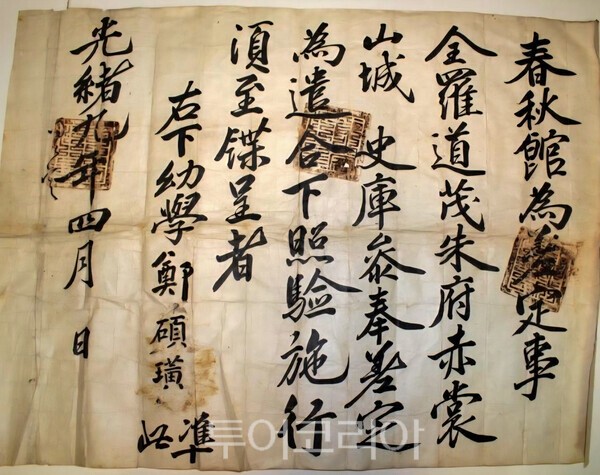 春秋館爲差定事
全羅道茂朱府赤裳
山城 史庫叅奉差定
爲遣合下照驗施行
須至牒呈者
右下幼學鄭碩璜 準此
光緖九年四月 日
투어코리아